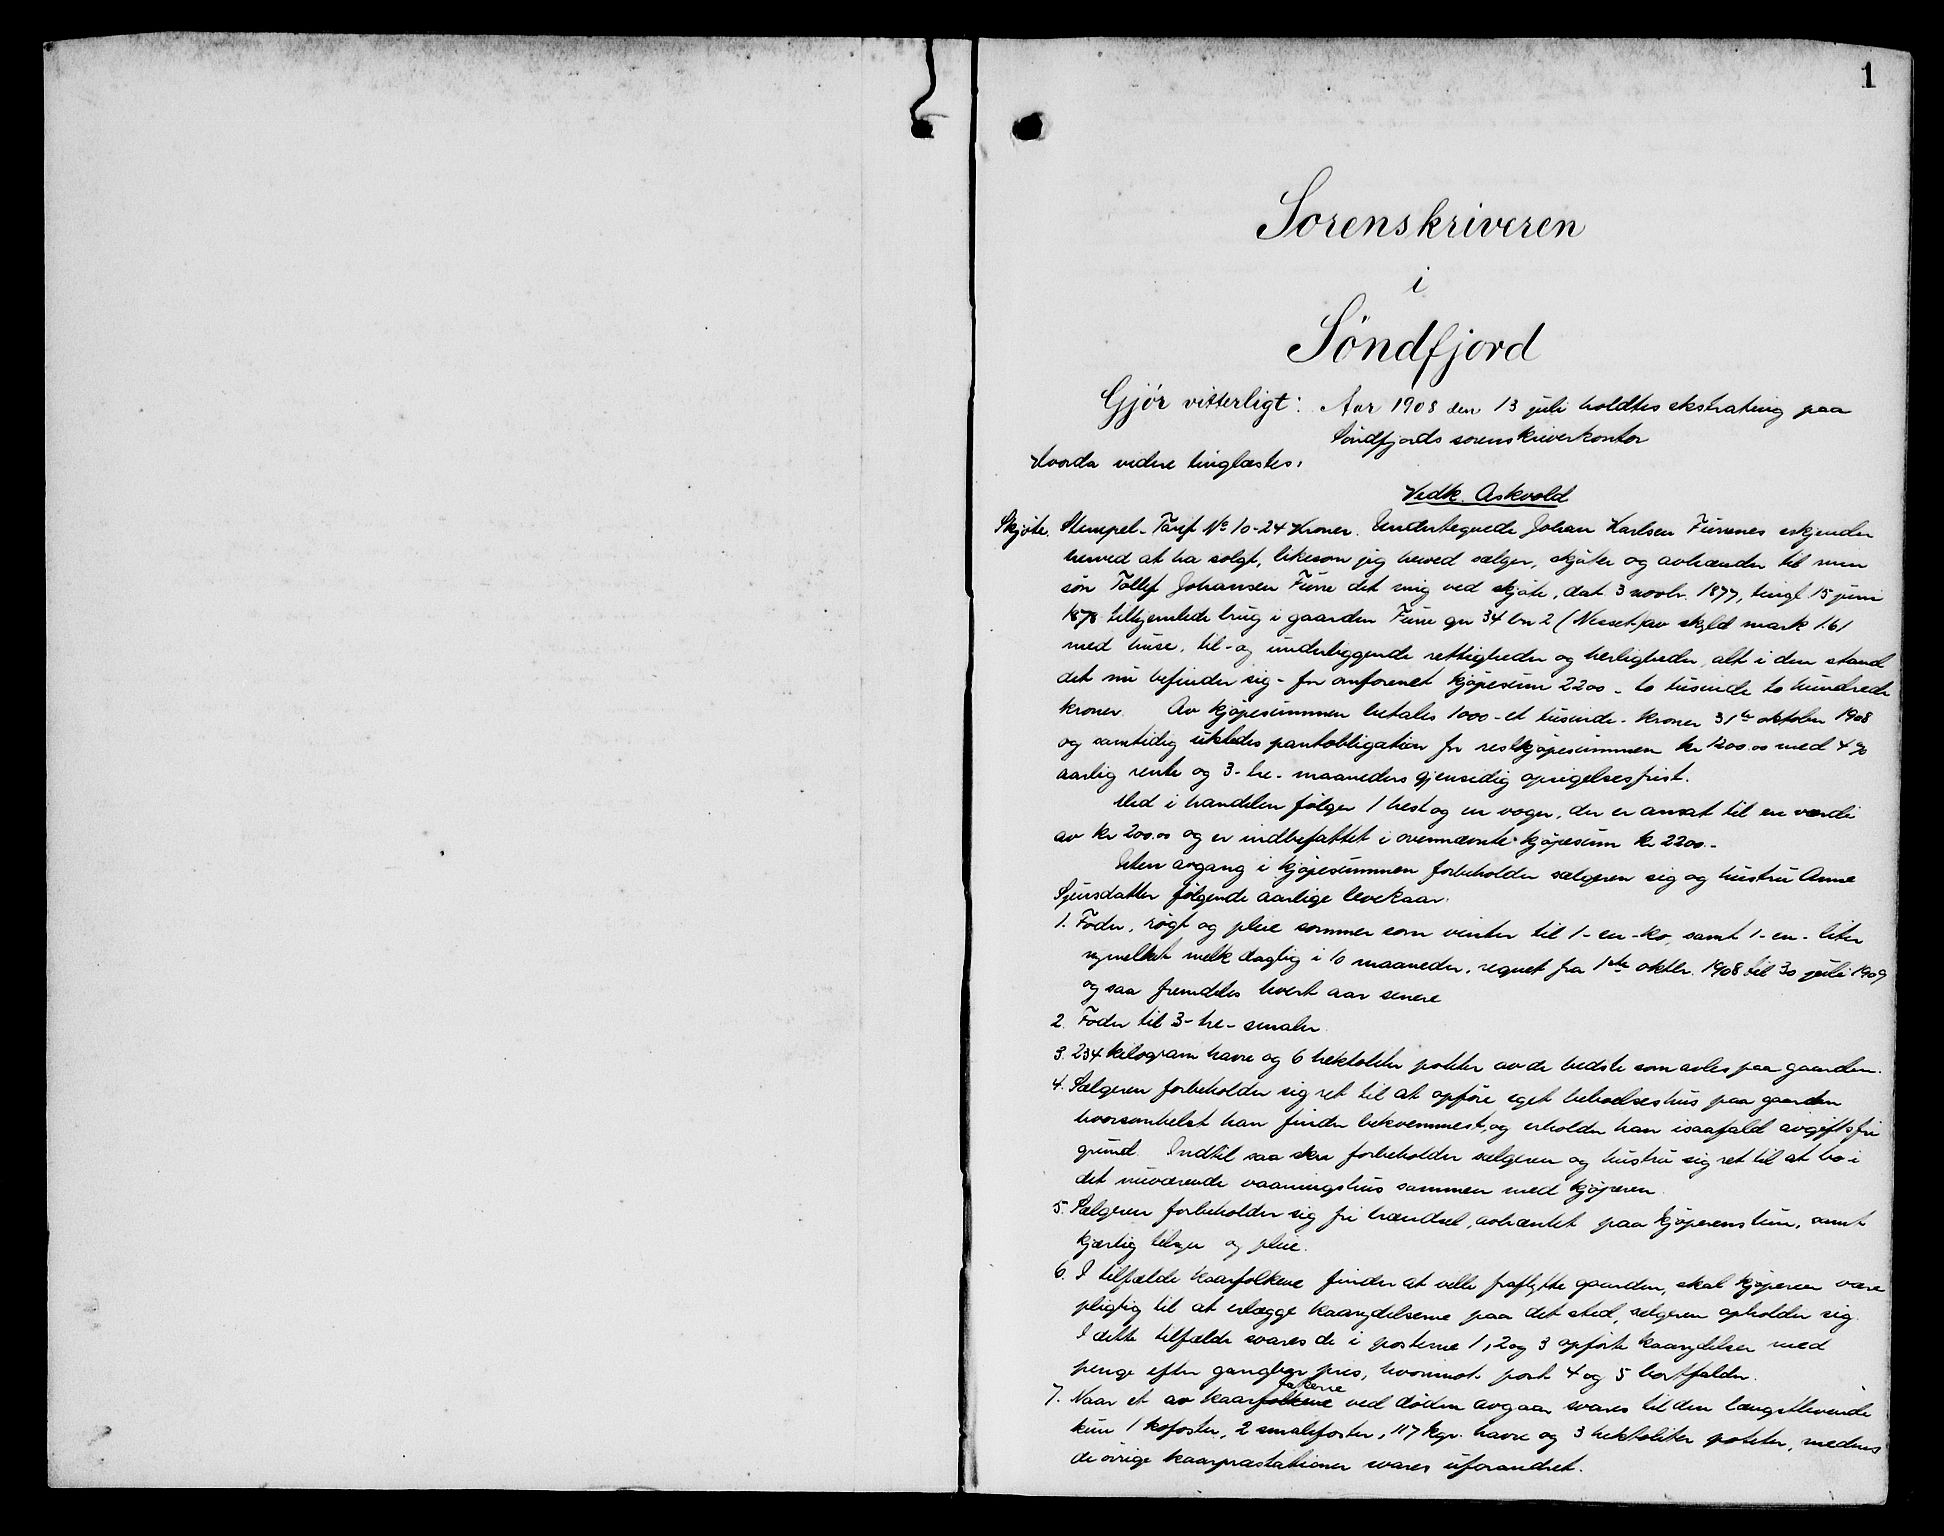 1
Sorenskriveren
i
Söndfjord
Gjör vitterligt: Aar 1908 den 13 juli holdtes ekstrating paa
Söndfjords sorenskriverkontor
Hvorda videre tinglæstes:
Vedk. Askvold
Skjöte. Stempel-Tarif No 10-24 Kroner. Undertegnede Johan Karlsen Furenes erkjender
herved at ha solgt, likesom jeg herved sælger, skjöter og avhænder til min
sön Tollef Johansen Furre det mig ved skjöte, dat. 3 novbr. 1877, tingl. 15 juni
1878 tilhjemlede brug i gaarden Furre gn 34 bn 2 (Nesset) av skyld mark 1.61
med huse, til- og underliggende rettigheder og herligheder, alt i den stand
det nu befinder sig - for omforenet kjöpesum 2200 - to tusinde to hundrede
kroner. Av kjöpesummen betales 1000 - et tusinde - kroner 31te oktober 1908
og samtidig utstedes pantobligation for restkjöpesummen kr. 1200.00 med 4 %
aarlig rente og 3 - tre - maaneders gjensidig opsigelsesfrist.
Med i handelen fölger 1 hest og en vogn, der er ansat til en værdi
av kr 200.00 og er indbefattet i ovennævnte kjöpesum kr. 2200.-
Uten avgang i kjöpesummen forbeholder sælgeren sig og hustru Anne
Sjursdatter fölgende aarlige levekaar:
1. Foder, rögt og pleie sommer som vinter til 1 - en - ko, samt 1 - en - liter
nymelket melk daglig i 10 maaneder, regnet fra 1ste oktbr. 1908 til 30 juli 1909
og saa fremdeles hvert aar senere
2. Foder til 3 - tre - smaler.
3. 234 kilogram havre og 6 hektoliter poteter av de bedste som avles paa gaarden.
4. Sælgeren forbeholder sig ret til at opföre eget beboelseshus paa gaarden
hvorsomhelst han finder bekvemmest, og erholder han isaafald avgiftsfri
grund. Indtil saa sker forbeholder sælgeren og hustru sig ret til at bo i
det nuværende vaaningshus sammen med kjöperen.
5. Sælgeren forbeholder sig fri brændsel, avhæntet paa kjöperens tun, samt
kjærlig tilsyn og pleie.
6. I tilfælde kaarfolkene finder at ville fraflytte gaarden, skal kjöperen være
pligtig til at erlægge kaarydelserne paa det sted, sælgeren opholder sig.
I dette tilfælde svares de i posterne 1, 2 og 3 opförte kaarydelser med
penge efter gangbar pris, hvorimot post 4 og 5 bortfalder.
7. Naar et av kaarfolkene takerne ved döden avgaar svares til den længstlevende
kun 1 kofoster, 2 smalefoster, 117 kgr. havre og 3 hektoliter poteter, medens
de övrige kaarpræstationer svares uforandret.